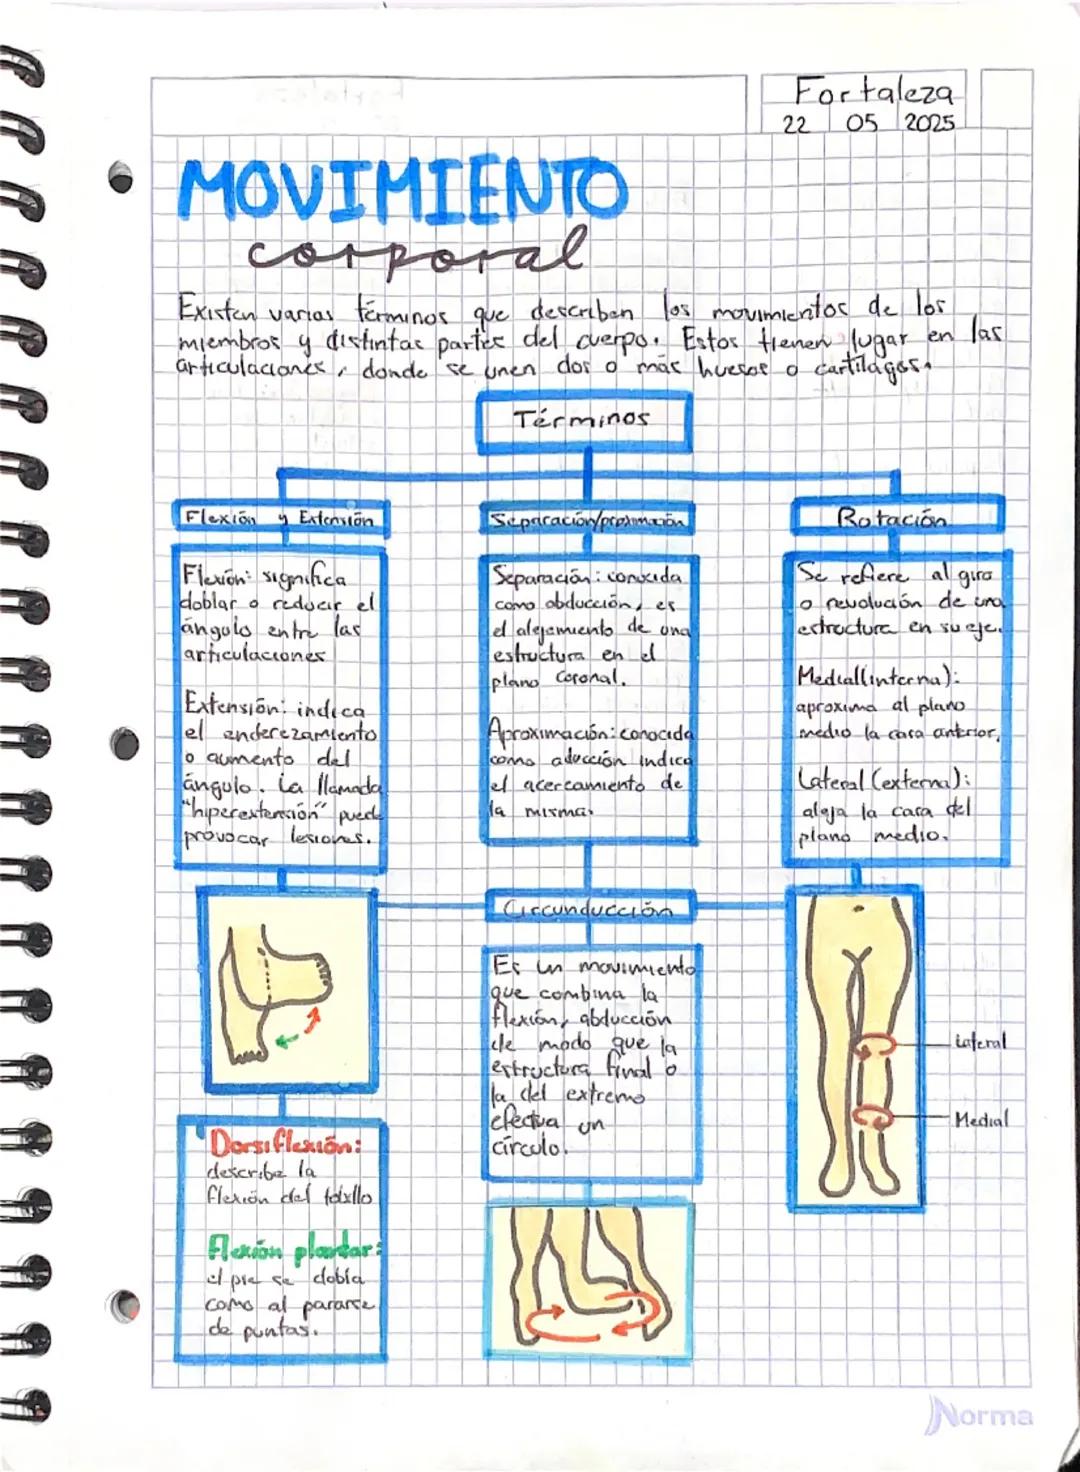 Fortaleza
22 05 2025
MOVIMIENTO
corporal
Existen varios términos que describen los movimientos de los
miembros y distintas partes del cuerpo. Estos tienen lugar en las
articulaciones, donde se unen dos o más huesos o cartílagos.
Términos
Flexión y Extensión
Flexión: significa
doblar o reducir el
ángulo entre las
articulaciones
Extensión: indica
el enderezamiento
o aumento del
ángulo. La llamada
"hiperextensión" puede
provocar lesiones.
Dorsiflexión:
describe la
flexión del tobillo
Flexión plantar:
el pie se dobla
como al pararse
de puntas.
Separación/proximación
Separación: conocida
como abducción, es
el alejamiento de una
estructura en el
plano coronal.
Aproximación: conocida
como aducción indica
el acercamiento de
la misma.
Circunducción
Es un movimiento
que combina la
flexión, abducción
de modo que la
estructura final o
la del extremo
efectua un
círculo.
Rotación
Se refiere al giro
o revolución de una
estructura en su eje.
Medial(interna):
aproxima al plano
medio la cara anterior,
Lateral (externa):
aleja la cara del
plano medio.
Lateral
Medial
Norma